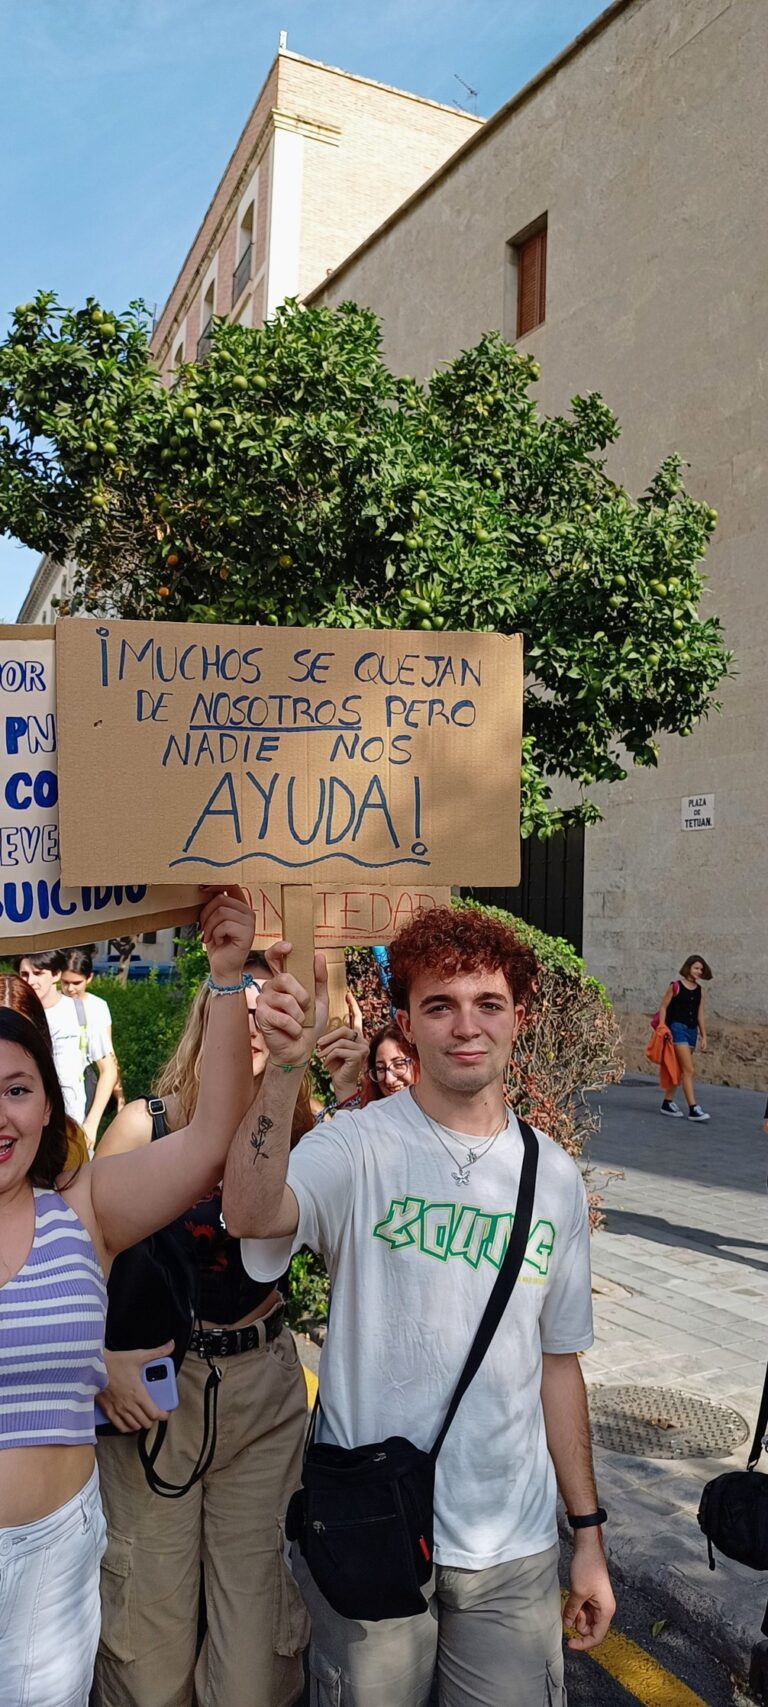 ¡MUCHOS SE QUEJAN
DE NOSOTROS PERO
NADIE NOS
AYUDA!
OR
PN
CO
EVE
SUICIDIO
ANSIEDAD
PLAZA
DE
TETUAN.
YOUNG